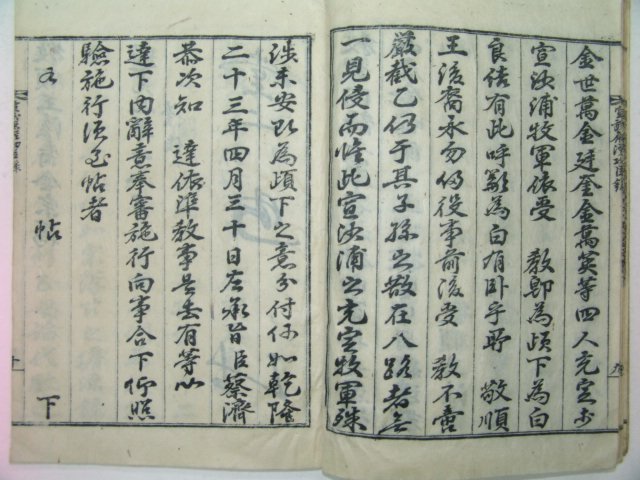 金世萬金廷釜金萬英等四人充定於
宣沙浦牧軍依受 敎卽爲頉下爲白
良結有此呼籲爲白有臥乎所 敬順
王後裔永勿侵役事前後受 敎不啻
嚴截乙仍于其子孫之散在八路者無
一見侵而惟此宣沙浦之充定牧軍殊
涉未安卽爲頉下之意分付何如乾隆
二十三年四月三十日左承旨臣蔡濟
恭次知 達依準敎事是去有等以
達下內辭意奉審施行向事合下仰照
驗施行須至帖者
右 帖 下